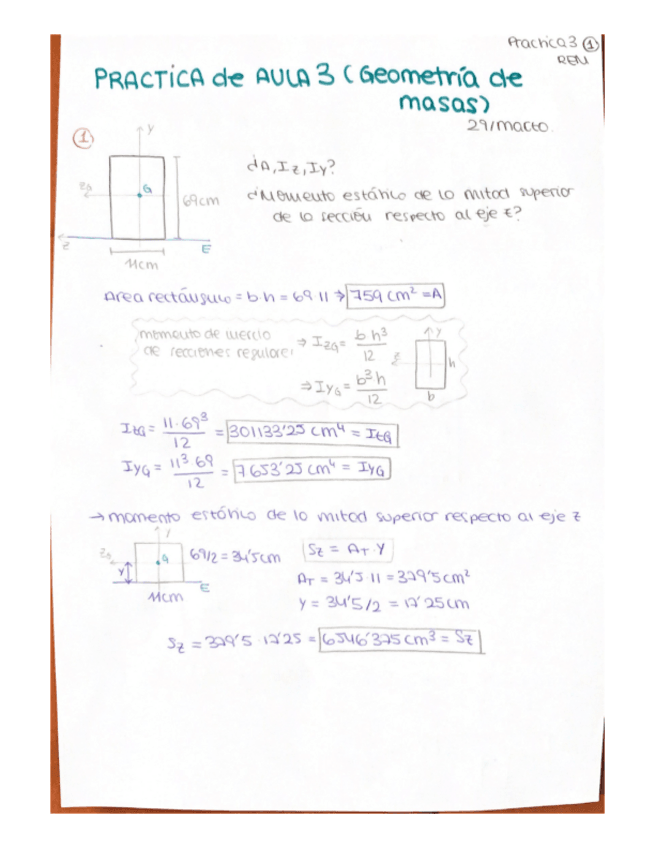 Practica 3 ①
REM
PRACTICA de AULA 3 (Geometría de
masas)
29/marzo.
①
y
¿A, Iz, Iy?
zG
G
69cm
¿Momento estático de la mitad superior
de la sección respecto al eje z?
z
E
11cm
Area rectángulo = b·h = 69·11 ⇒ 759 cm² = A
momento de inercia
de secciones regulares
⇒ IzG = b h³/12
⇒ IyG = b³h/12
y
z
h
b
IzG = 11·69³/12 = 301133'25 cm⁴ = IzG
IyG = 11³·69/12 = 7653'25 cm⁴ = IyG
→ momento estático de la mitad superior respecto al eje z
y
zG
G
69/2 = 34'5cm
Sz = AT · Y
Y
E
AT = 34'5·11 = 379'5cm²
11cm
Y = 34'5/2 = 17'25cm
Sz = 379'5 · 17'25 = 6546'375 cm³ = Sz